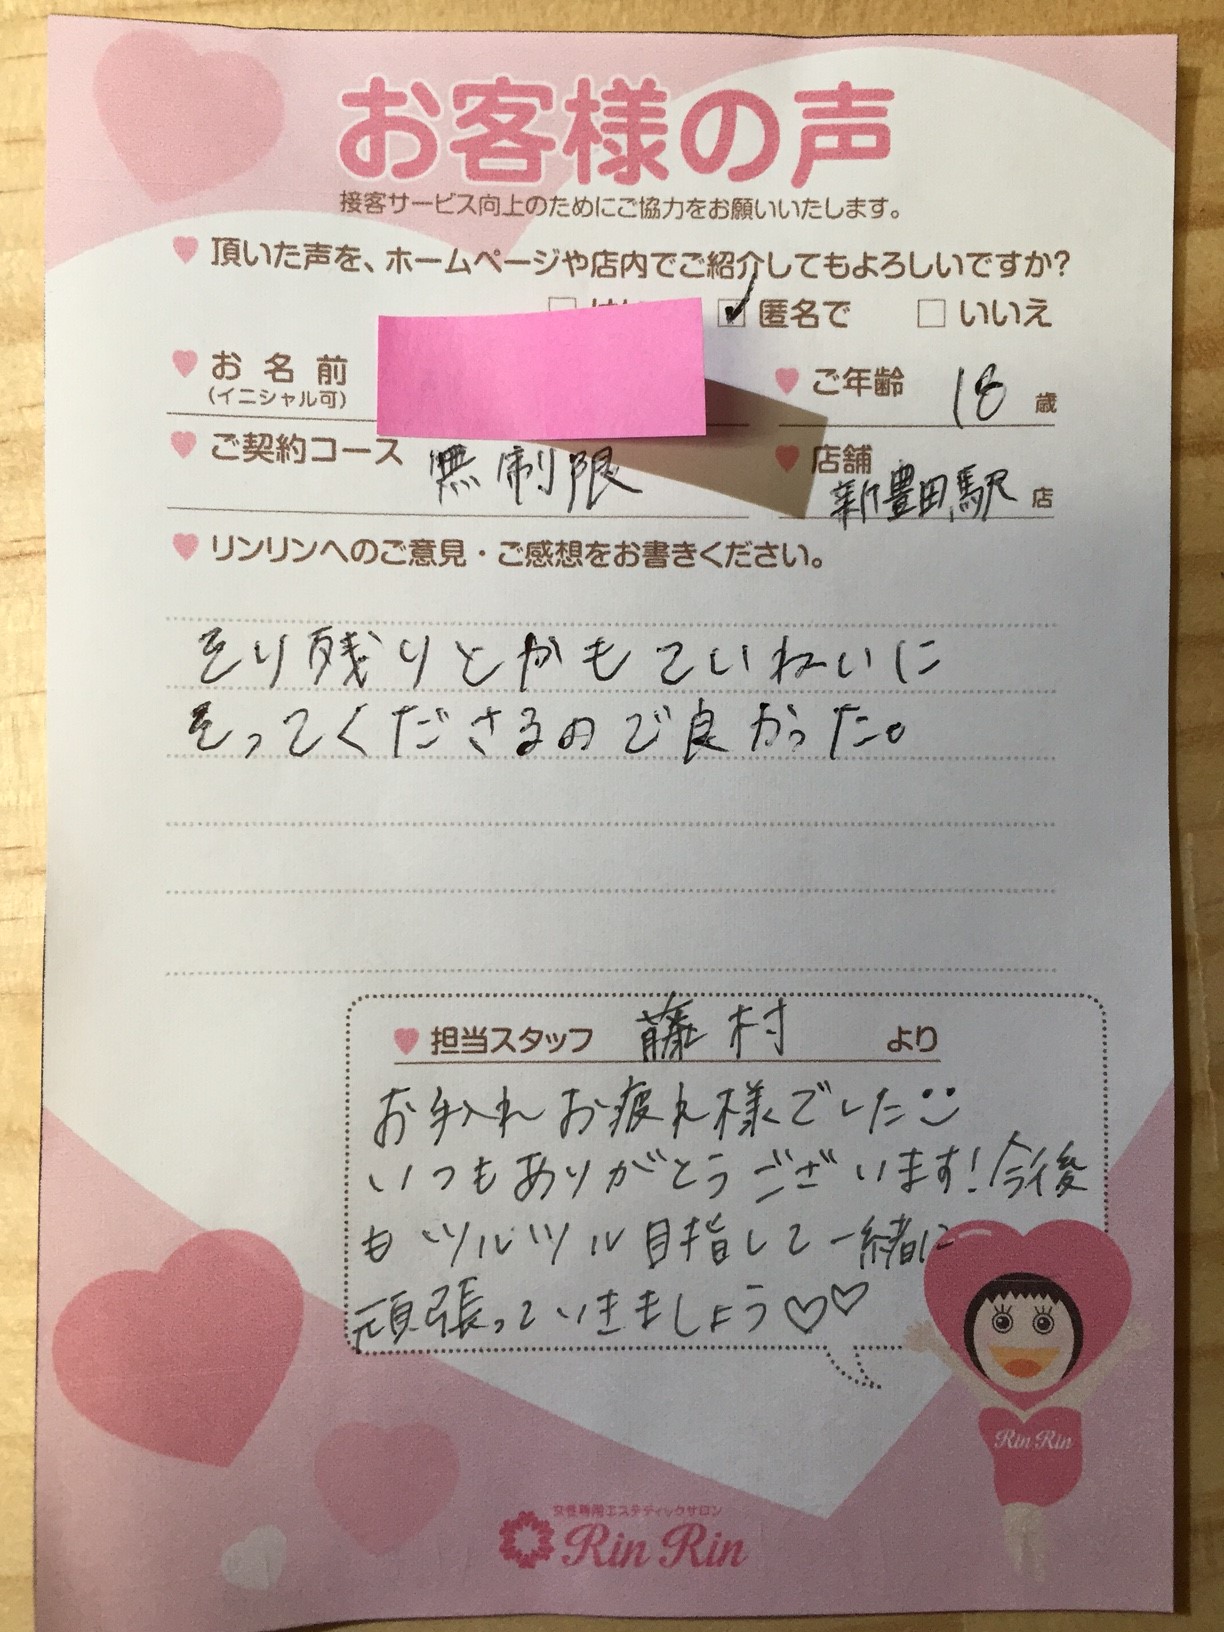 お客様の声
接客サービス向上のためにご協力をお願いいたします。
頂いた声を、ホームページや店内でご紹介してもよろしいですか?
匿名で いいえ
お名前
(イニシャル可)
ご年齢 18 歳
ご契約コース 無制限
店舗 新豊田駅 店
リンリンへのご意見・ご感想をお書きください。
そり残りとかもていねいに
そってくださるので良かった。
担当スタッフ 藤村 より
お手入れお疲れ様でした
いつもありがとうございます!今後
もツルツル目指して一緒に
頑張っていきましょう♡♡
Rin Rin
女性専用エステティックサロン
Rin Rin